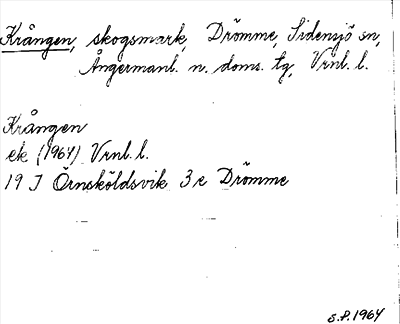 Krången, skogsmark, Drömme, Sidensjö sn,
Ångermanl. n. doms. tg, Vrnl. l.
Krången
ek (1964) Vrnl. l.
19 J Örnsköldsvik 3 e Drömme
S.P. 1964